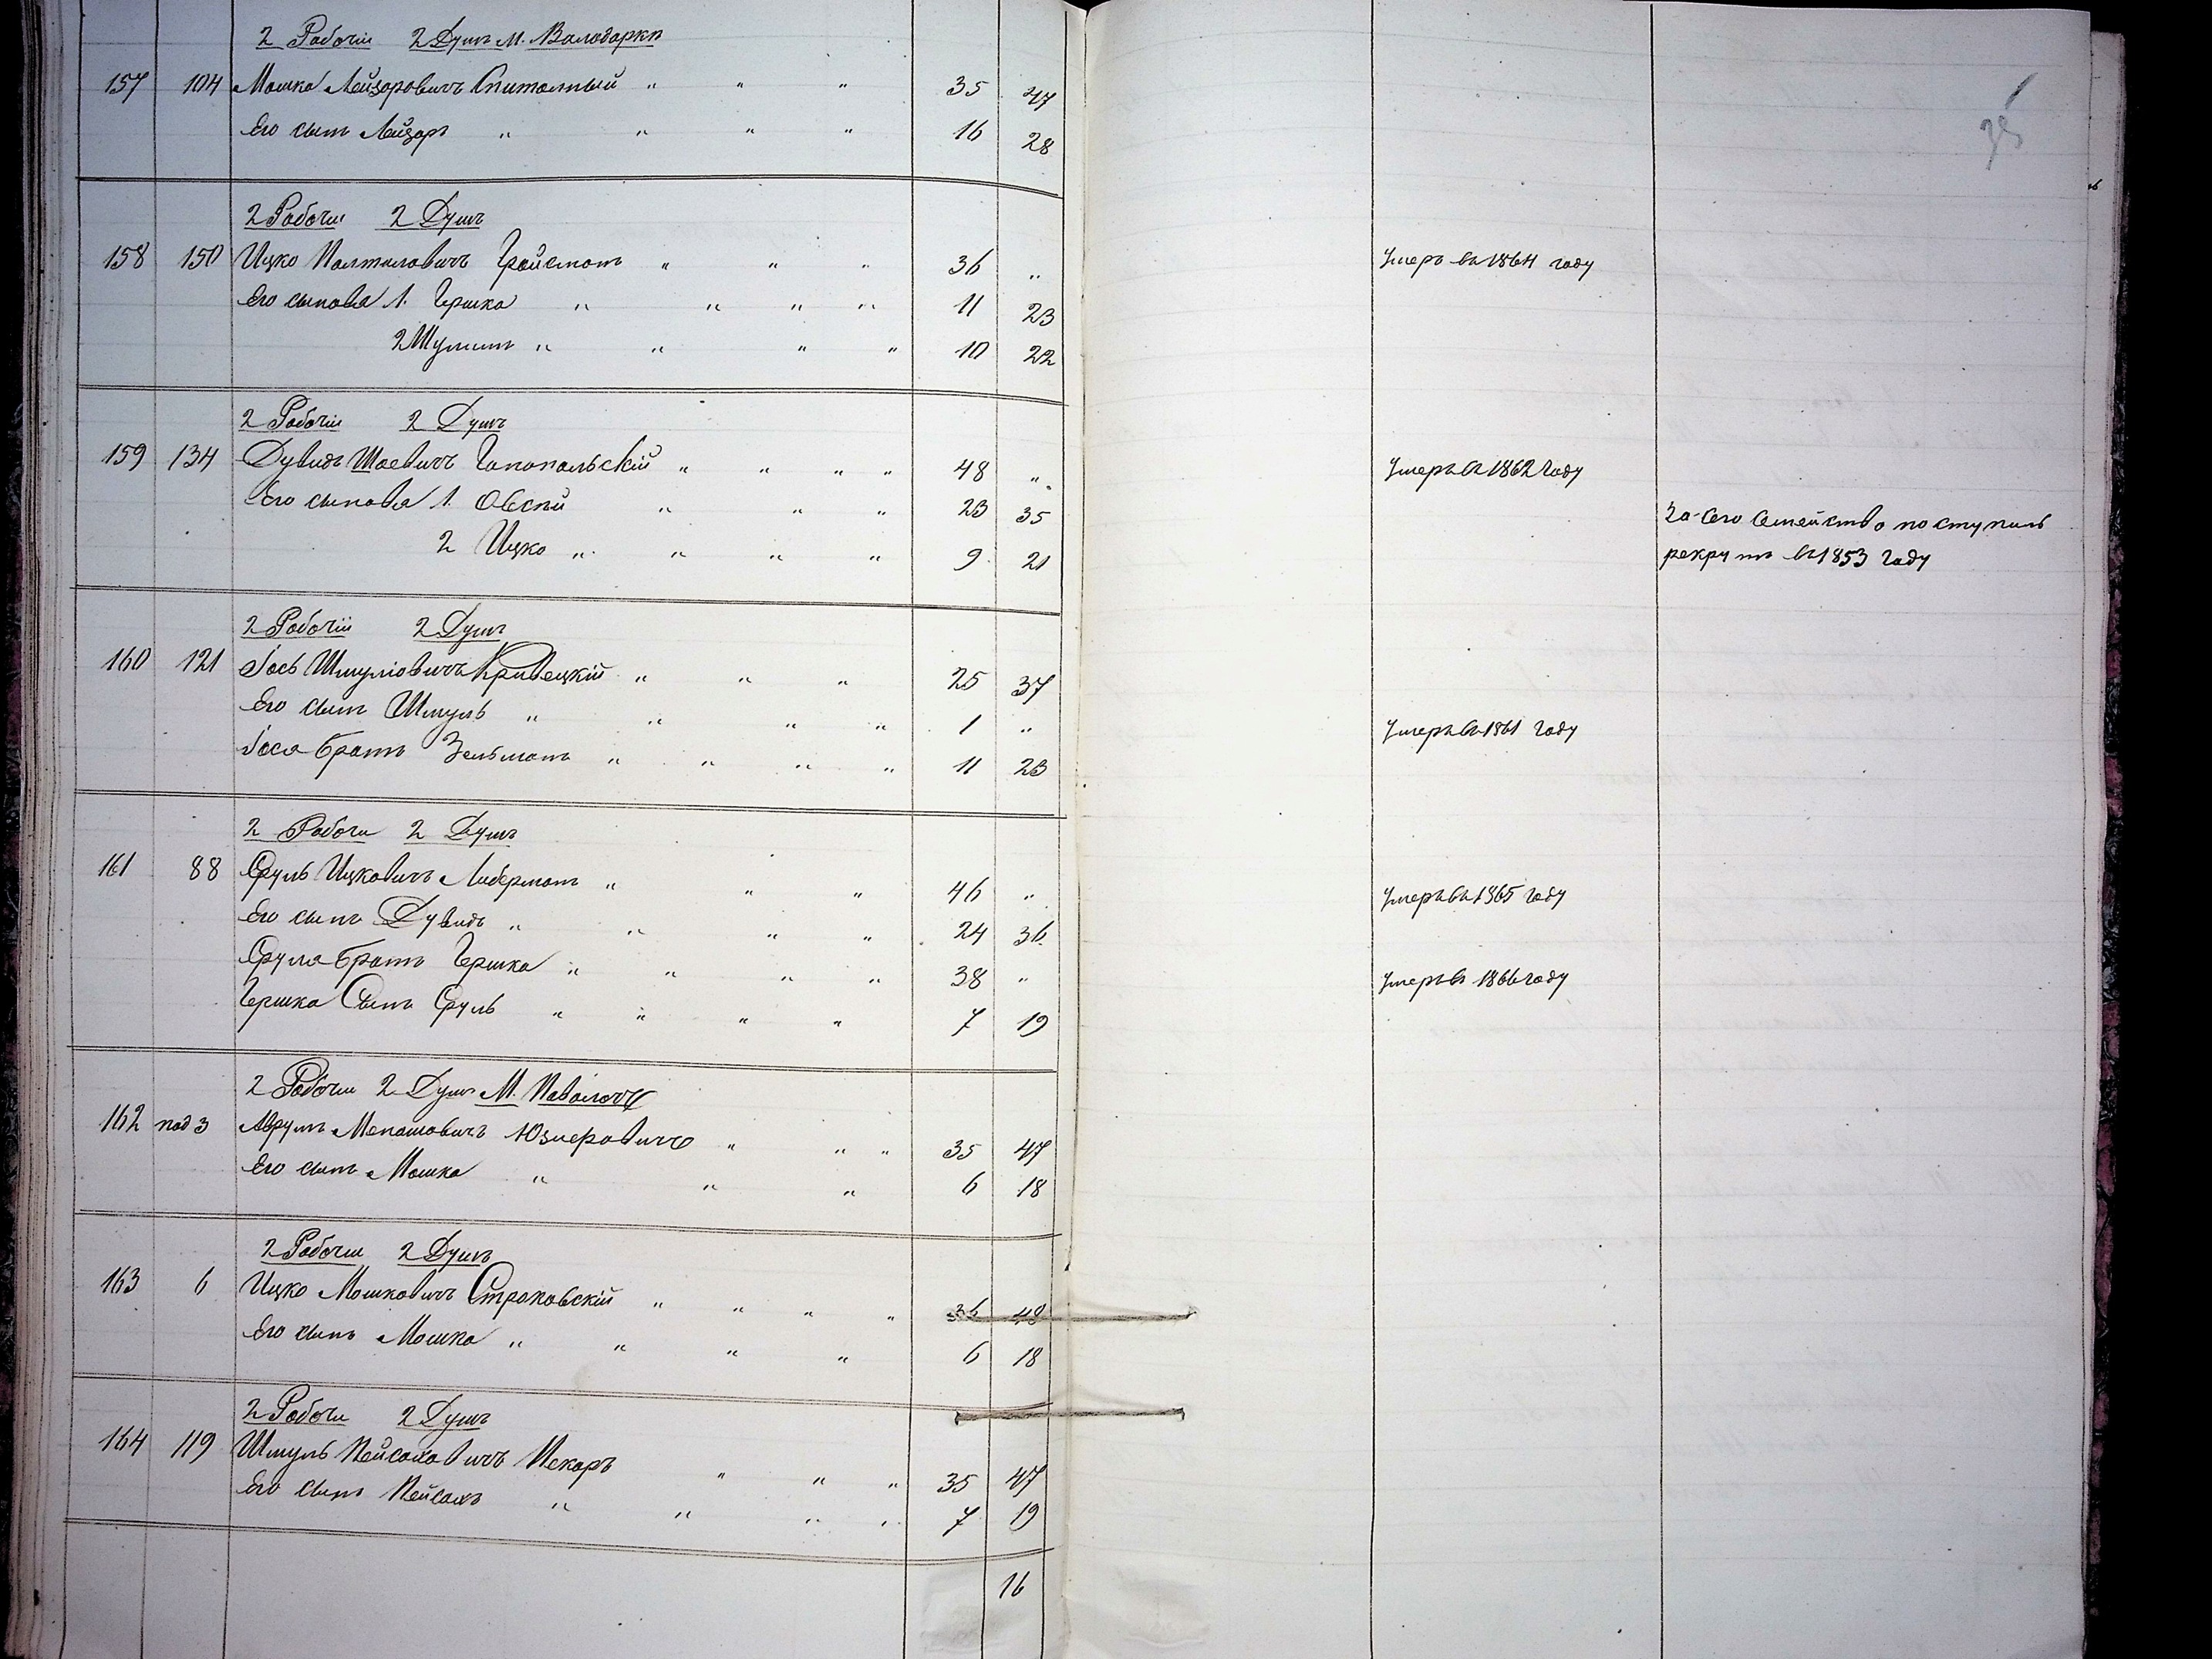 2 Рабочіи 2 Душъ М. Володарки
157 104 Мошко Лейзоровичъ Спитальный " " " 35 47
Его сынъ Лейзоръ " " " " 16 28
35
2 Рабочи 2 Душъ
158 150 Ицко Палтыловичъ Гройсманъ " " " 36 " Умеръ въ 1864 году
Его сыновья 1. Гершко " " " " 11 23
2 Шулимъ " " " " 10 22
2 Рабочіи 2 Душъ
159 134 Дувидъ Шаевичъ Топопольскій " " " " 48 " Умеръ въ 1862 году
Его сыновья 1. Овсій " " " 23 35 За-сего семейство поступилъ
2 Ицко " " " " 9 21 рекрутъ въ 1853 году
2 Рабочіи 2 Душъ
160 121 Іось Шмуліовичъ Кривецкій " " " 25 37
Его сынъ Шмуль " " " " 1 " Умеръ въ 1861 году
Іося братъ Зельманъ " " " " 11 23
2 Рабочи 2 Душъ
161 88 Сруль Ицковичъ Либерманъ " " " 46 " Умеръ въ 1865 году
Его сынъ Дувидъ " " " " 24 36
Сруля братъ Гершко " " " " 38 " Умеръ въ 1866 году
Гершка Сынъ Сруль " " " " 7 19
2 Рабочіи 2 Душъ М. Паволочъ
162 под 3 Аврумъ Менашовичъ Юзмеровичъ " " " 35 47
Его сынъ Мошко " " " 6 18
2 Рабочіи 2 Душъ
163 6 Ицко Мошковичъ Строковскій " " " " 36 48
Его сынъ Мошко " " " " 6 18
2 Рабочи 2 Душъ
164 119 Шмуль Пейсаховичъ Пекаръ " " " 35 47
Его сынъ Пейсахъ " " " " 7 19
16